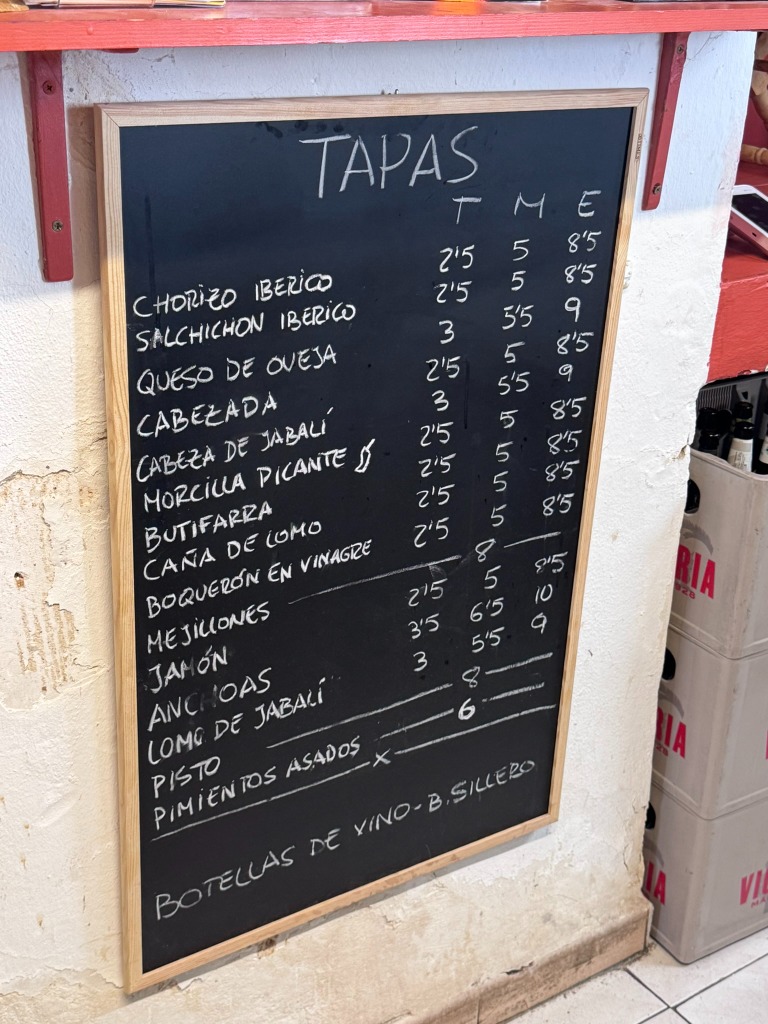 TAPAS
T M E
CHORIZO IBERICO 2'5 5 8'5
SALCHICHON IBERICO 2'5 5 8'5
QUESO DE OVEJA 3 5'5 9
CABEZADA 2'5 5 8'5
CABEZA DE JABALÍ 3 5'5 9
MORCILLA PICANTE 2'5 5 8'5
BUTIFARRA 2'5 5 8'5
CAÑA DE LOMO 2'5 5 8'5
BOQUERÓN EN VINAGRE 2'5 5 8'5
MEJILLONES — 8 —
JAMÓN 2'5 5 8'5
ANCHOAS 3'5 6'5 10
LOMO DE JABALÍ 3 5'5 9
PISTO — 8 —
PIMIENTOS ASADOS — 6 —
x
BOTELLAS DE VINO - B. SILLERO
RIA
928
RIA
28
IA
VIC
MA